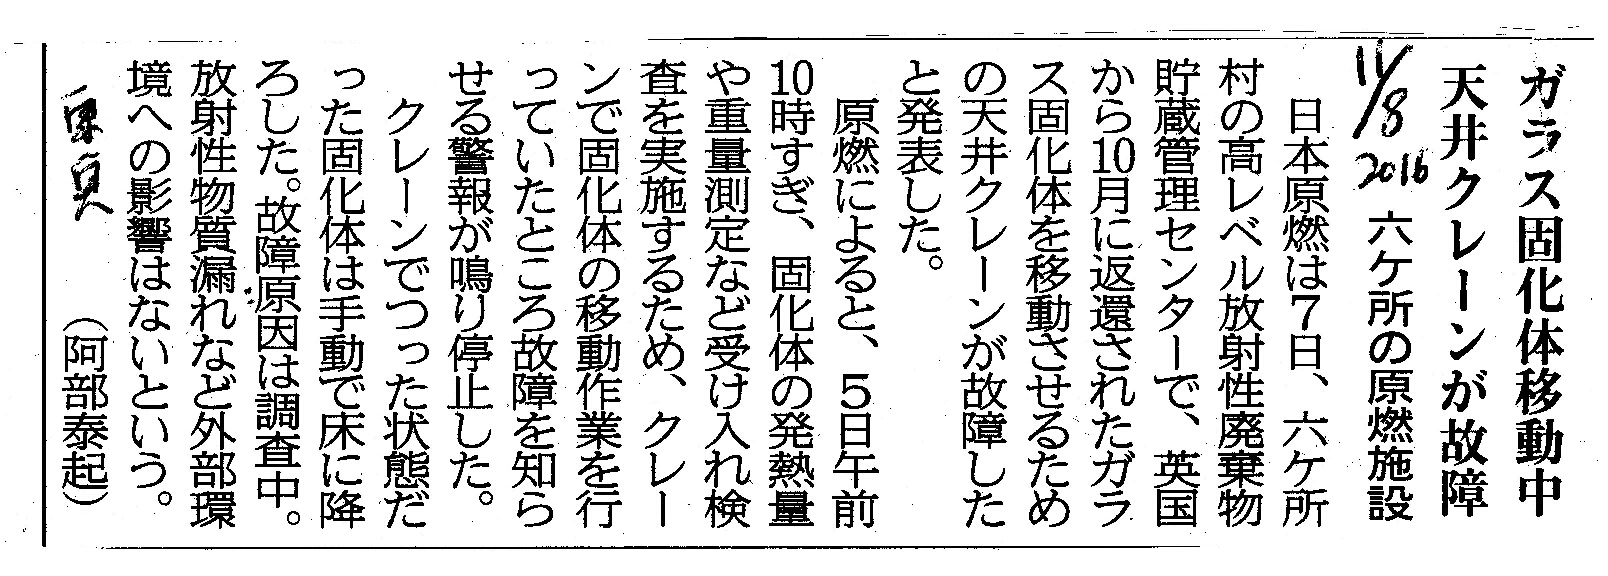 ガラス固化体移動中
天井クレーンが故障
11/8
2016
六ケ所の原燃施設
日本原燃は7日、六ケ所
村の高レベル放射性廃棄物
貯蔵管理センターで、英国
から10月に返還されたガラ
ス固化体を移動させるため
の天井クレーンが故障した
と発表した。
原燃によると、5日午前
10時すぎ、固化体の発熱量
や重量測定など受け入れ検
査を実施するため、クレー
ンで固化体の移動作業を行
っていたところ故障を知ら
せる警報が鳴り停止した。
クレーンでつった状態だ
った固化体は手動で床に降
ろした。故障原因は調査中。
放射性物質漏れなど外部環
境への影響はないという。
（阿部泰起）